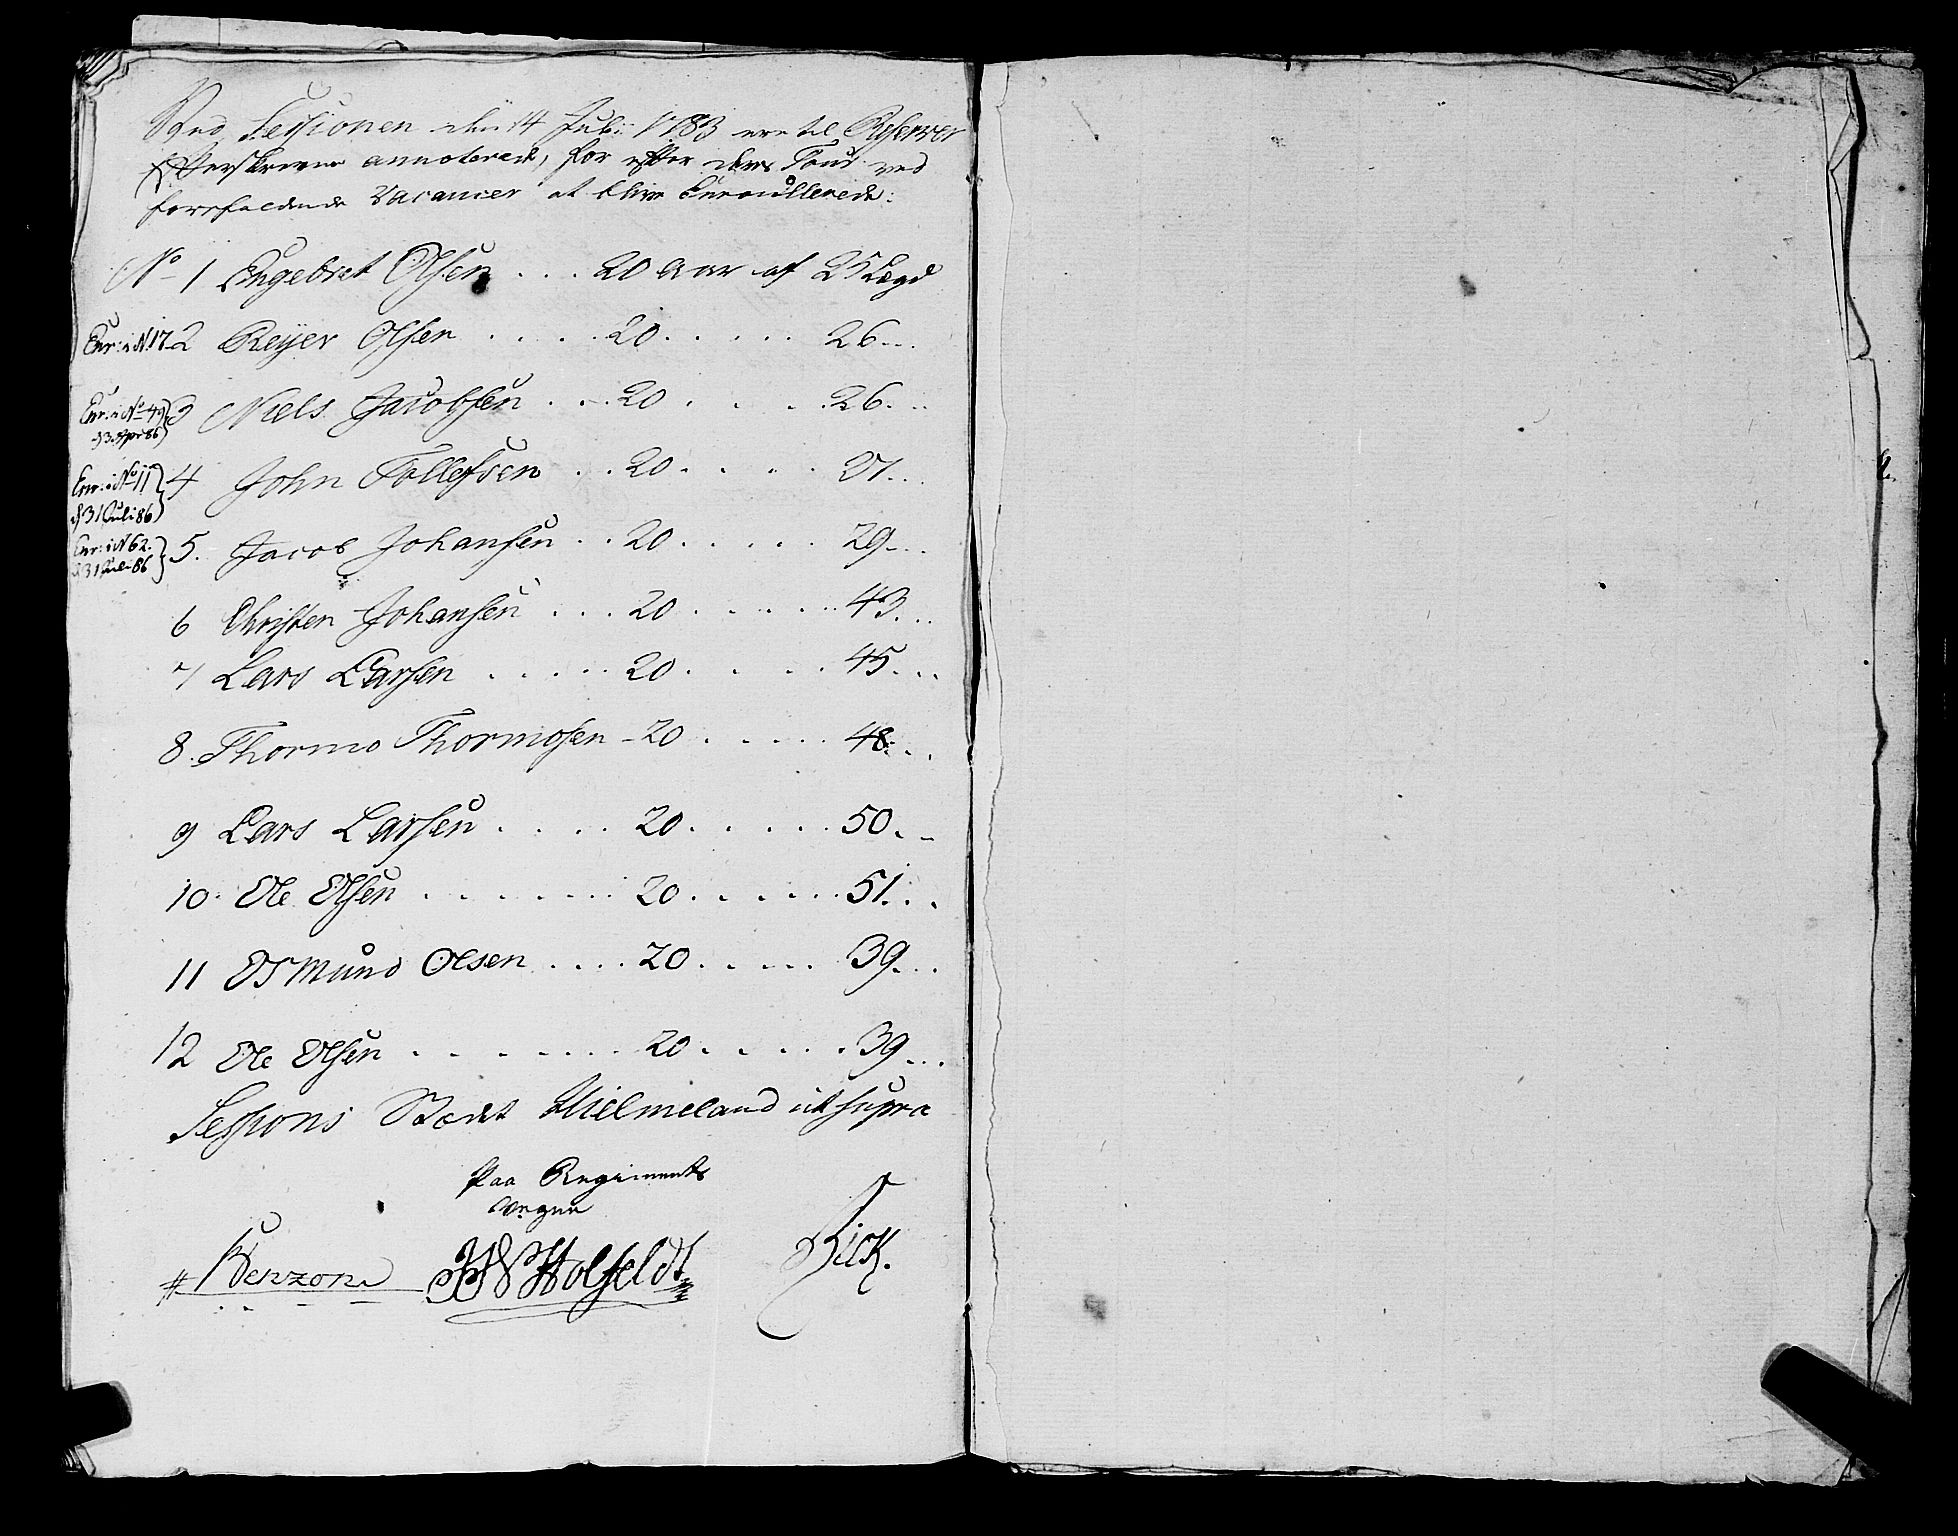 Ved Sessionen den 14 Juli 1783 ere til Reserver
Efterskrevne annoterede, for efter deres Tour ved
forefaldende Vacancer at blive Enroullerede:
No 1 Engebret Olsen . . . 20 Aar af 25 Lægd
Enr: i N. 17. 2 Reÿer Olsen . . . . 20 . . . . . 26 . . .
Enr: i No 49 d 3 Apr 86 } 3 Niels Jacobsen . . . 20 . . . . 26 . . .
Enr: i No 11 d 31 Juli 86 } 4 John Tollefsen . . 20 . . . . 27 . . .
Enr: i N 62. d 31 Juli 86 } 5. Jacob Johansen . . 20 . . . . . 29 . . .
6 Christen Johansen . . . 20 . . . . . . 43 . . .
7 Lars Larsen . . . . . 20 . . . . . 45 . . .
8. Thormo Thormosen - 20 . . . . . 48 . . .
9 Lars Larsen . . . . 20 . . . . . 50 . .
10. Ole Olsen . . . . . . . 20 . . . . . . 51 . . .
11 Osmund Olsen . . . . 20 . . . . . 39 . . .
12 Ole Olsen . . . . . . . 20 . . . . . 39 . . .
Sessions Stædet Hielmeland ut supra
Paa Regiments
vegne
Benzon Holfeldt Bick.